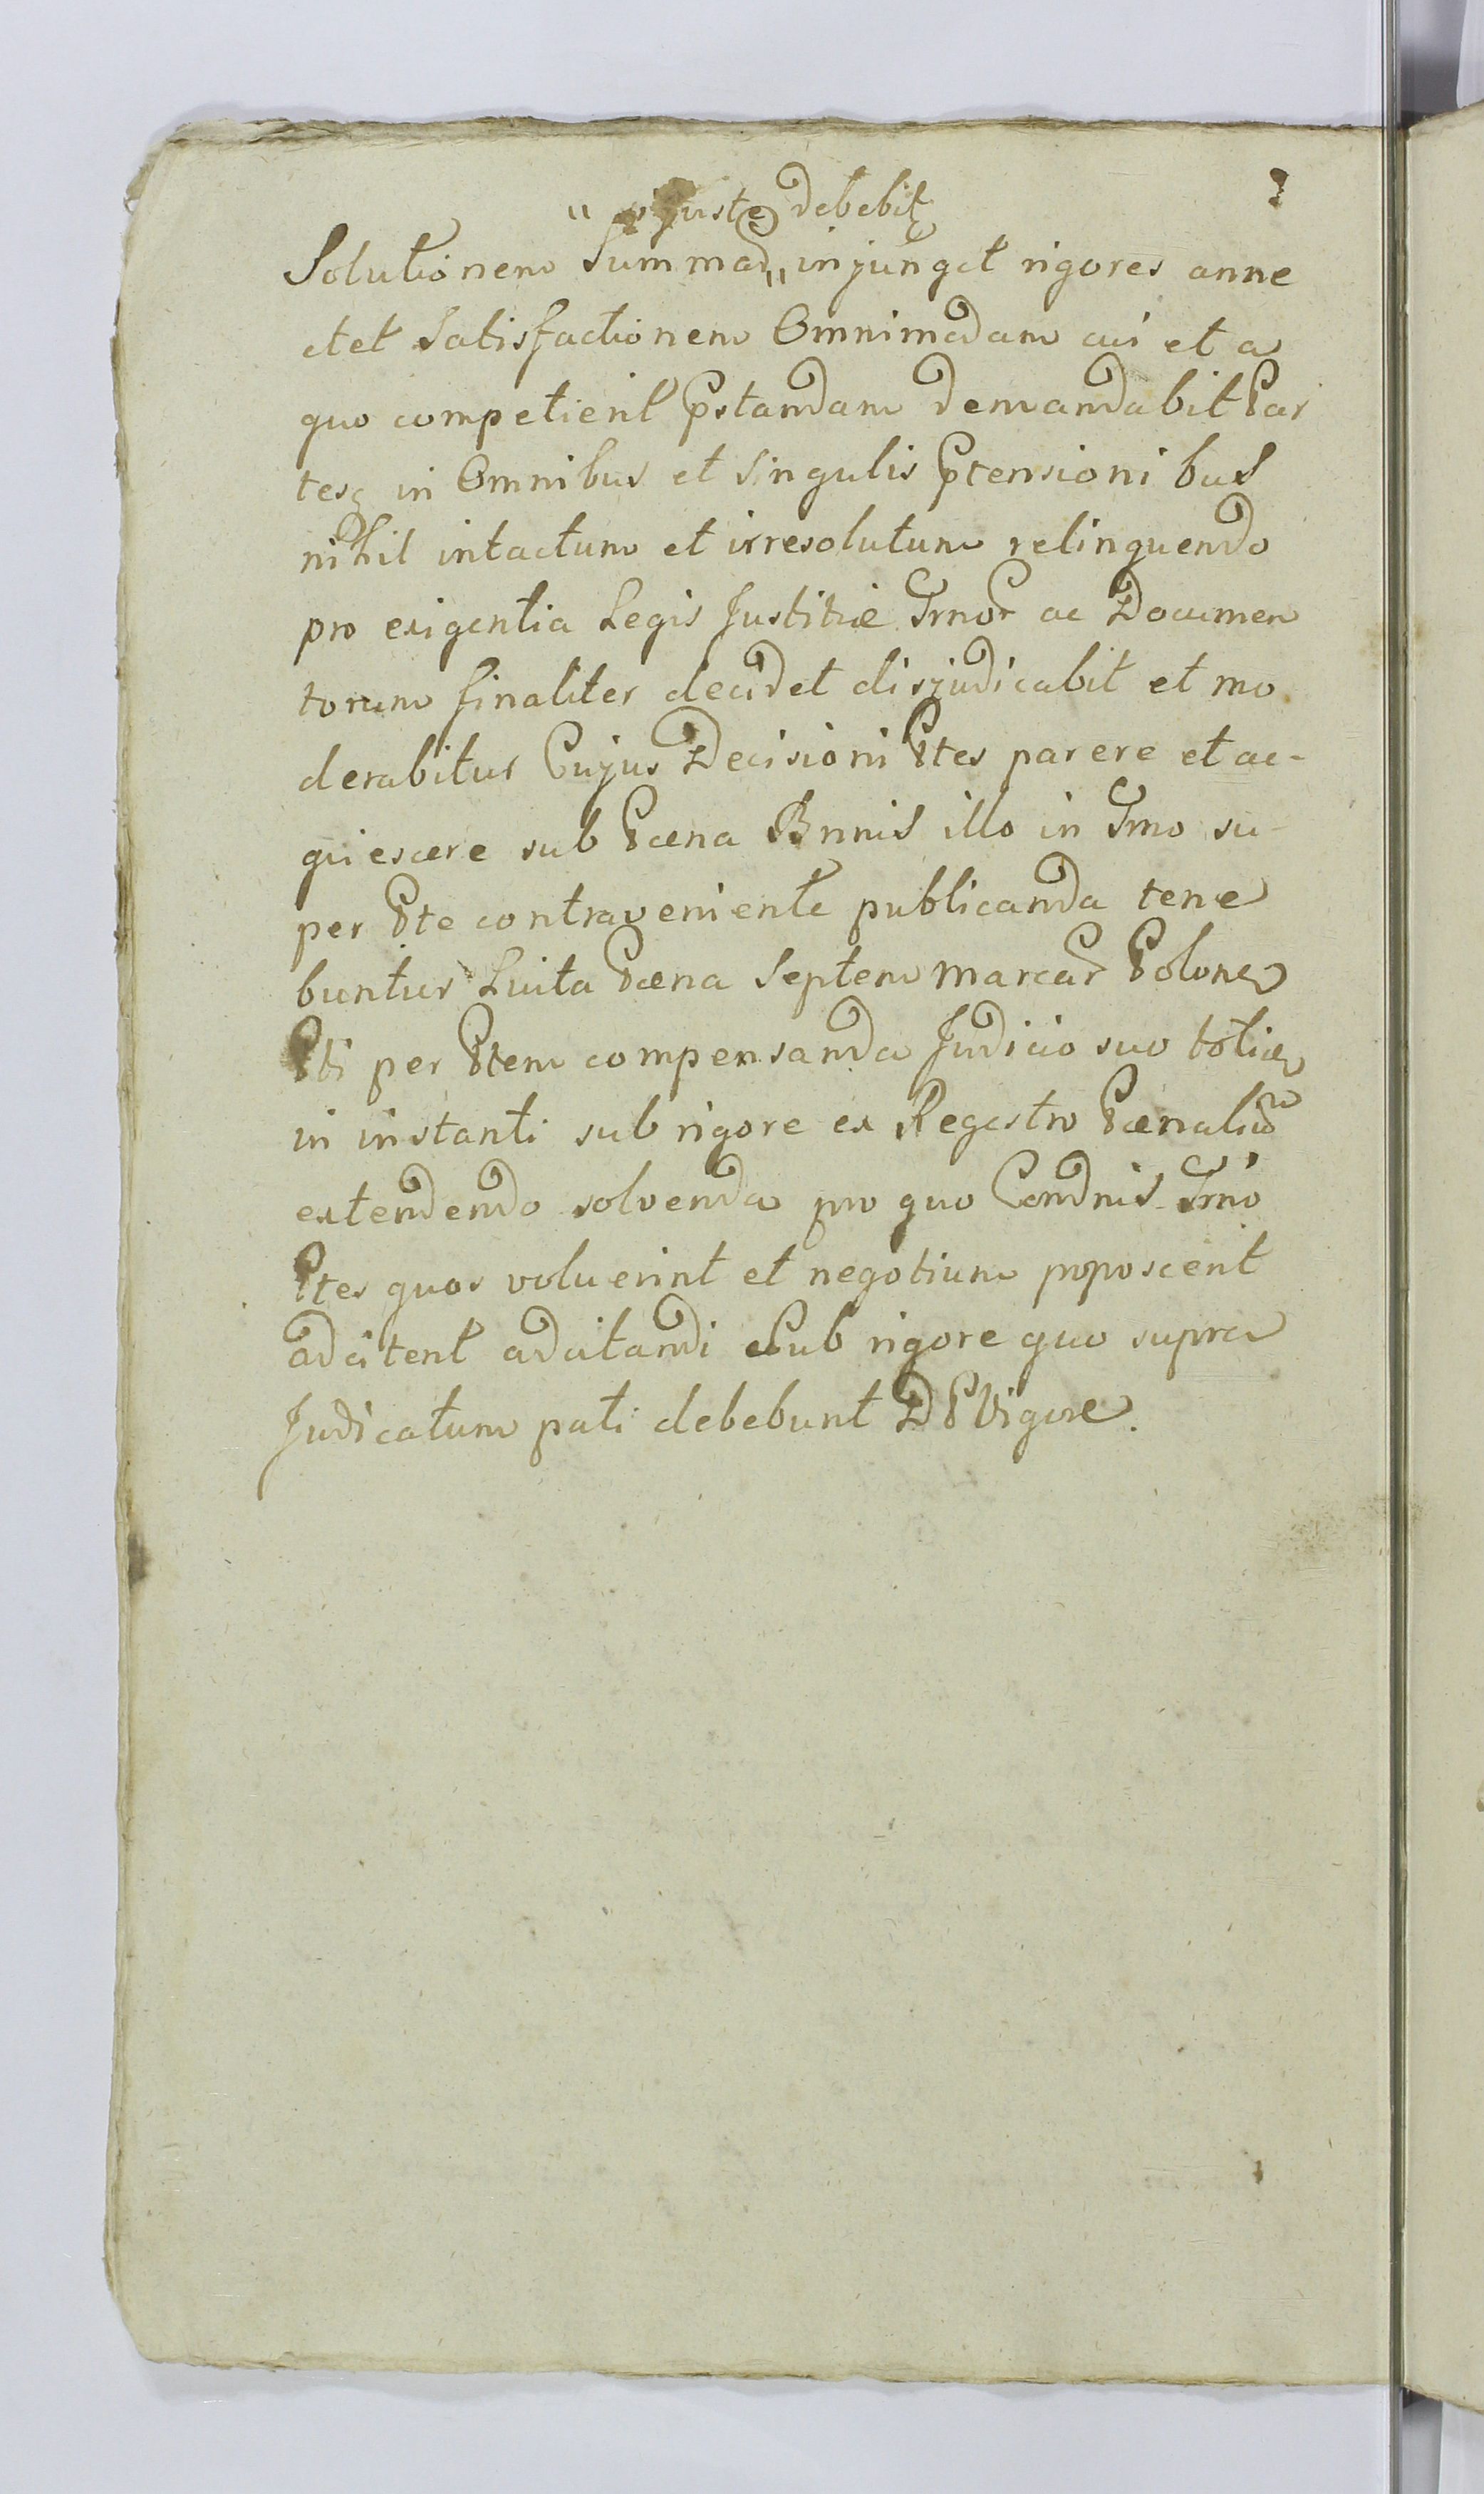 " juste debebit
Solutionem Summae " injunget rigores anne
ctet Satisfactionem Omnimodam cui et a
quo competierit Pstandam demandabit Par
tesq in Omnibus et Singulis Ptensionibus
nihil intactum et irresolutum relinquendo
pro exigentia Legis Justitiæ Trnor ac Documen
torum finaliter decidet disjudicabit et mo
derabitur Cujus Decisioni Ptes parere et ac-
quiescere sub Pæna Bnnis illo in Tmo su-
per Pte contraveniente publicanda tene
buntur Luita Pæna Septem Marcar Polone
Pti per Ptem compensanda Judicio suo toties
in instanti sub rigore ex Regestro Pænaliu
extendendo solvenda pro quo Condnis Trno
Ptes quos voluerint et negotium poposcerit
adcitent adcitandi Sub rigore quo supra
Judicatum pati debebunt D P Vigore.